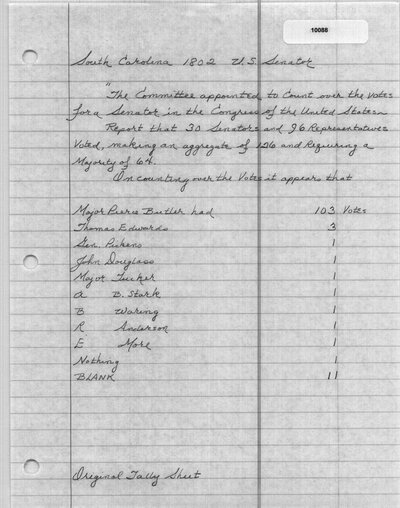 10088
South Carolina 1802 U.S. Senator
"The Committee appointed to Count over the Votes
for a Senator in the Congress of the United States
Report that 30 Senators and 96 Representatives
Voted, making an aggregate of 126 and Requiring a
Majority of 64.
On counting over the Votes it appears that
Major Pierce Butler had 103 Votes
Thomas Edwards 3
Gen. Pickens 1
John Douglass 1
Major Tucker 1
A B. Stark 1
B Waring 1
R Anderson 1
E More 1
Nothing 1
BLANK 11
Original Tally Sheet